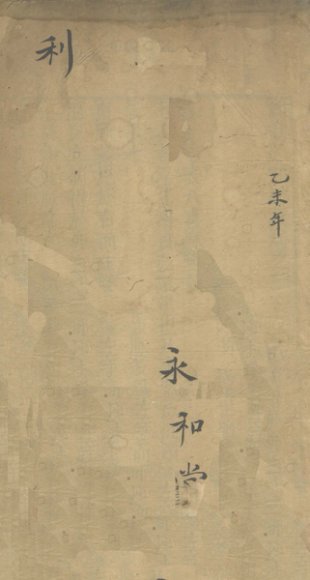 乙未年
永和堂
利